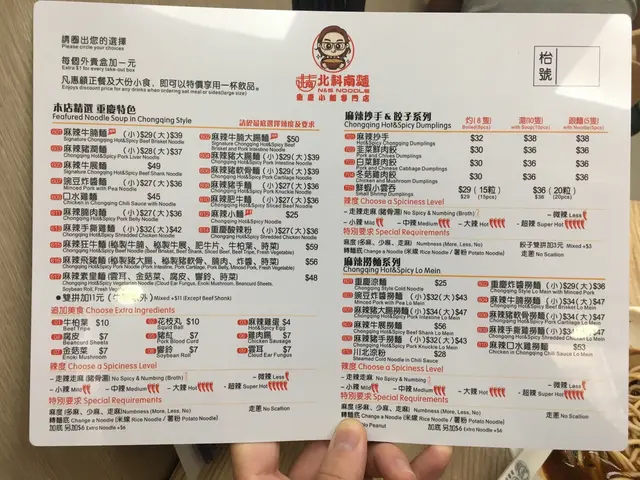 請圈出您的選擇
Please circle your choices
每個外賣盒加一元
Extra $1 for every take-out box
凡惠顧正餐及大份小食，即可以特價享用一杯飲品。
Enjoys discount price for any drinks when ordering set meal or sides(large size)
北科南麵
N&S NOODLE
重慶小麵專門店
枱號
本店精選 重慶特色
Featured Noodle Soup in Chongqing Style
請於最底選擇辣度及要求
麻辣牛腩麵 (小)$29(大)$39
Signature Chongqing Hot&Spicy Beef Brisket Noodle
麻辣豬潤麵 (小)$28(大)$37
Chongqing Hot&Spicy Pork Liver Noodle
麻辣牛展麵 $49
Signature Chongqing Hot&Spicy Beef Shank Noodle
豌豆炸醬麵 (小)$27(大)$36
Minced Pork with Pea Noodle
口水雞麵 $45
Chicken in Chongqing Chili Sauce with Noodle
麻辣腩肉麵 (小)$27(大)$36
Chongqing Hot&Spicy Pork Belly Noodle
麻辣手撕雞麵 (小)$32(大)$42
Chongqing Hot&Spicy Shredded Chicken Noodle
麻辣牛腩大腸麵 $50
Signature Chongqing Hot&Spicy Beef Brisket and Pork Intestine Noodle
麻辣豬大腸麵 (小)$29(大)$39
Chongqing Hot&Spicy Pork Intestine Noodle
麻辣豬軟骨麵 (小)$29(大)$39
Chongqing Hot&Spicy Pork Cartilage Noodle
麻辣豬手麵 (小)$27(大)$36
Chongqing Hot&Spicy Pork Knuckle Noodle
麻辣肥牛麵 (小)$27(大)$36
Chongqing Hot&Spicy Sliced Beef Noodle
麻辣小麵 $25
Chongqing Hot&Spicy Noodle
重慶酸辣粉 (小)$27(大)$36
$59
$56
$48
雙拼加11元
Mixed +$11 (Except Beef Shank)
追加美食 Choose Extra Ingredients
牛柏葉 $10
Beef Tripe
腐皮 $7
Beancurd Sheets
金菇菜 $7
Enoki Mushroom
花枝丸 $10
Squid Ball
豬紅 $7
Pork Blood Cord
響鈴 $7
Soybean Roll
麻辣雞蛋 $4
Hot&Spicy Egg
雞肉腸 $7
Chicken Sausage
雲耳 $7
Cloud Ear Fungus
辣度 Choose a Spiciness Level
- 走辣走麻(豬骨湯) No Spicy & Numbing (Broth)
- 微辣 Less
- 小辣 Mild
- 中辣 Medium
- 大辣 Hot
- 超辣 Super Hot
特別要求 Special Requirements
麻度 (多麻、少麻、走麻) Numbness (More, Less, No)
走蔥 No Scallion
轉麵底 Change a Noodle (米線 Rice Noodle / 薯粉 Potato Noodle)
加底 另加$6 Extra Noodle +$6
麻辣抄手 & 餃子系列
Chongqing Hot&Spicy Dumplings
灼(8隻)
Boiled(8pcs)
湯(10隻)
with Soup(10pcs)
跟麵(5隻)
with Noodle(5pcs)
麻辣抄手 $32 $38 $38
Hot&Spicy Chongqing Dumplings
韮菜鮮肉餃 $30 $36 $36
Pork and Chives Dumplings
白菜鮮肉餃 $30 $36 $36
Pork and Cabbage Dumplings
冬菇雞肉餃 $30 $36 $36
Chicken and Mushroom Dumplings
鮮蝦小雲吞 $29 (15粒) $36 (20粒)
Small Shrimp Dumplings $29 (15pcs) $36 (20pcs)
辣度 Choose a Spiciness Level
- 走辣走麻(豬骨湯) No Spicy & Numbing (Broth)
- 微辣 Less
- 小辣 Mild
- 中辣 Medium
- 大辣 Hot
- 超辣 Super Hot
特別要求 Special Requirements
麻度 (多麻、少麻、走麻) Numbness (More, Less, No)
餃子雙拼加三元 Mixed +$3
轉麵底 Change a Noodle (米線 Rice Noodle / 薯粉 Potato Noodle)
走蔥 No Scallion
麻辣撈麵系列
Chongqing Hot&Spicy Lo Mein
重慶涼麵 $25
Chongqing Style Cold Noodle
豌豆炸醬撈麵 (小)$32(大)$43
Minced Pork with Pea Lo Mein
麻辣豬大腸撈麵 (小)$34(大)$47
Chongqing Hot&Spicy Pork Intestine Lo Mein
麻辣牛展撈麵 $56
Chongqing Hot&Spicy Beef Shank Lo Mein
麻辣豬手撈麵 (小)$32(大)$43
Chongqing Hot&Spicy Pork Knuckle Lo Mein
川北涼粉 $28
Steamed Cold Noodle in Chili Sauce
重慶炸醬撈麵 (小)$29(大)$36
麻辣牛腩撈麵 (小)$34(大)$47
麻辣豬軟骨撈麵 (小)$34(大)$47
麻辣手撕雞撈麵
麻辣口水雞撈麵 $53
Chicken in Chongqing Chili Sauce Lo Mein
辣度 Choose a Spiciness Level
- 走辣走麻 No Spicy & Numbing
- 微辣 Less
- 小辣 Mild
- 中辣 Medium
- 大辣 Hot
- 超辣 Super Hot
特別要求 Special Requirements
麻度 (多麻、少麻、走麻) Numbness (More, Less, No)
走蔥 No Scallion
轉麵底 Change a Noodle (米線 Rice Noodle / 薯粉 Potato Noodle)
加底 另加$6 Extra Noodle +$6
Peanut